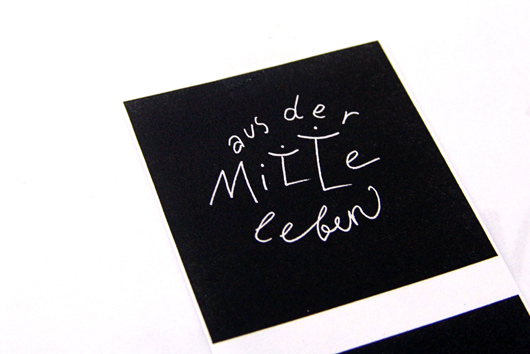 aus der
Mitte
leben